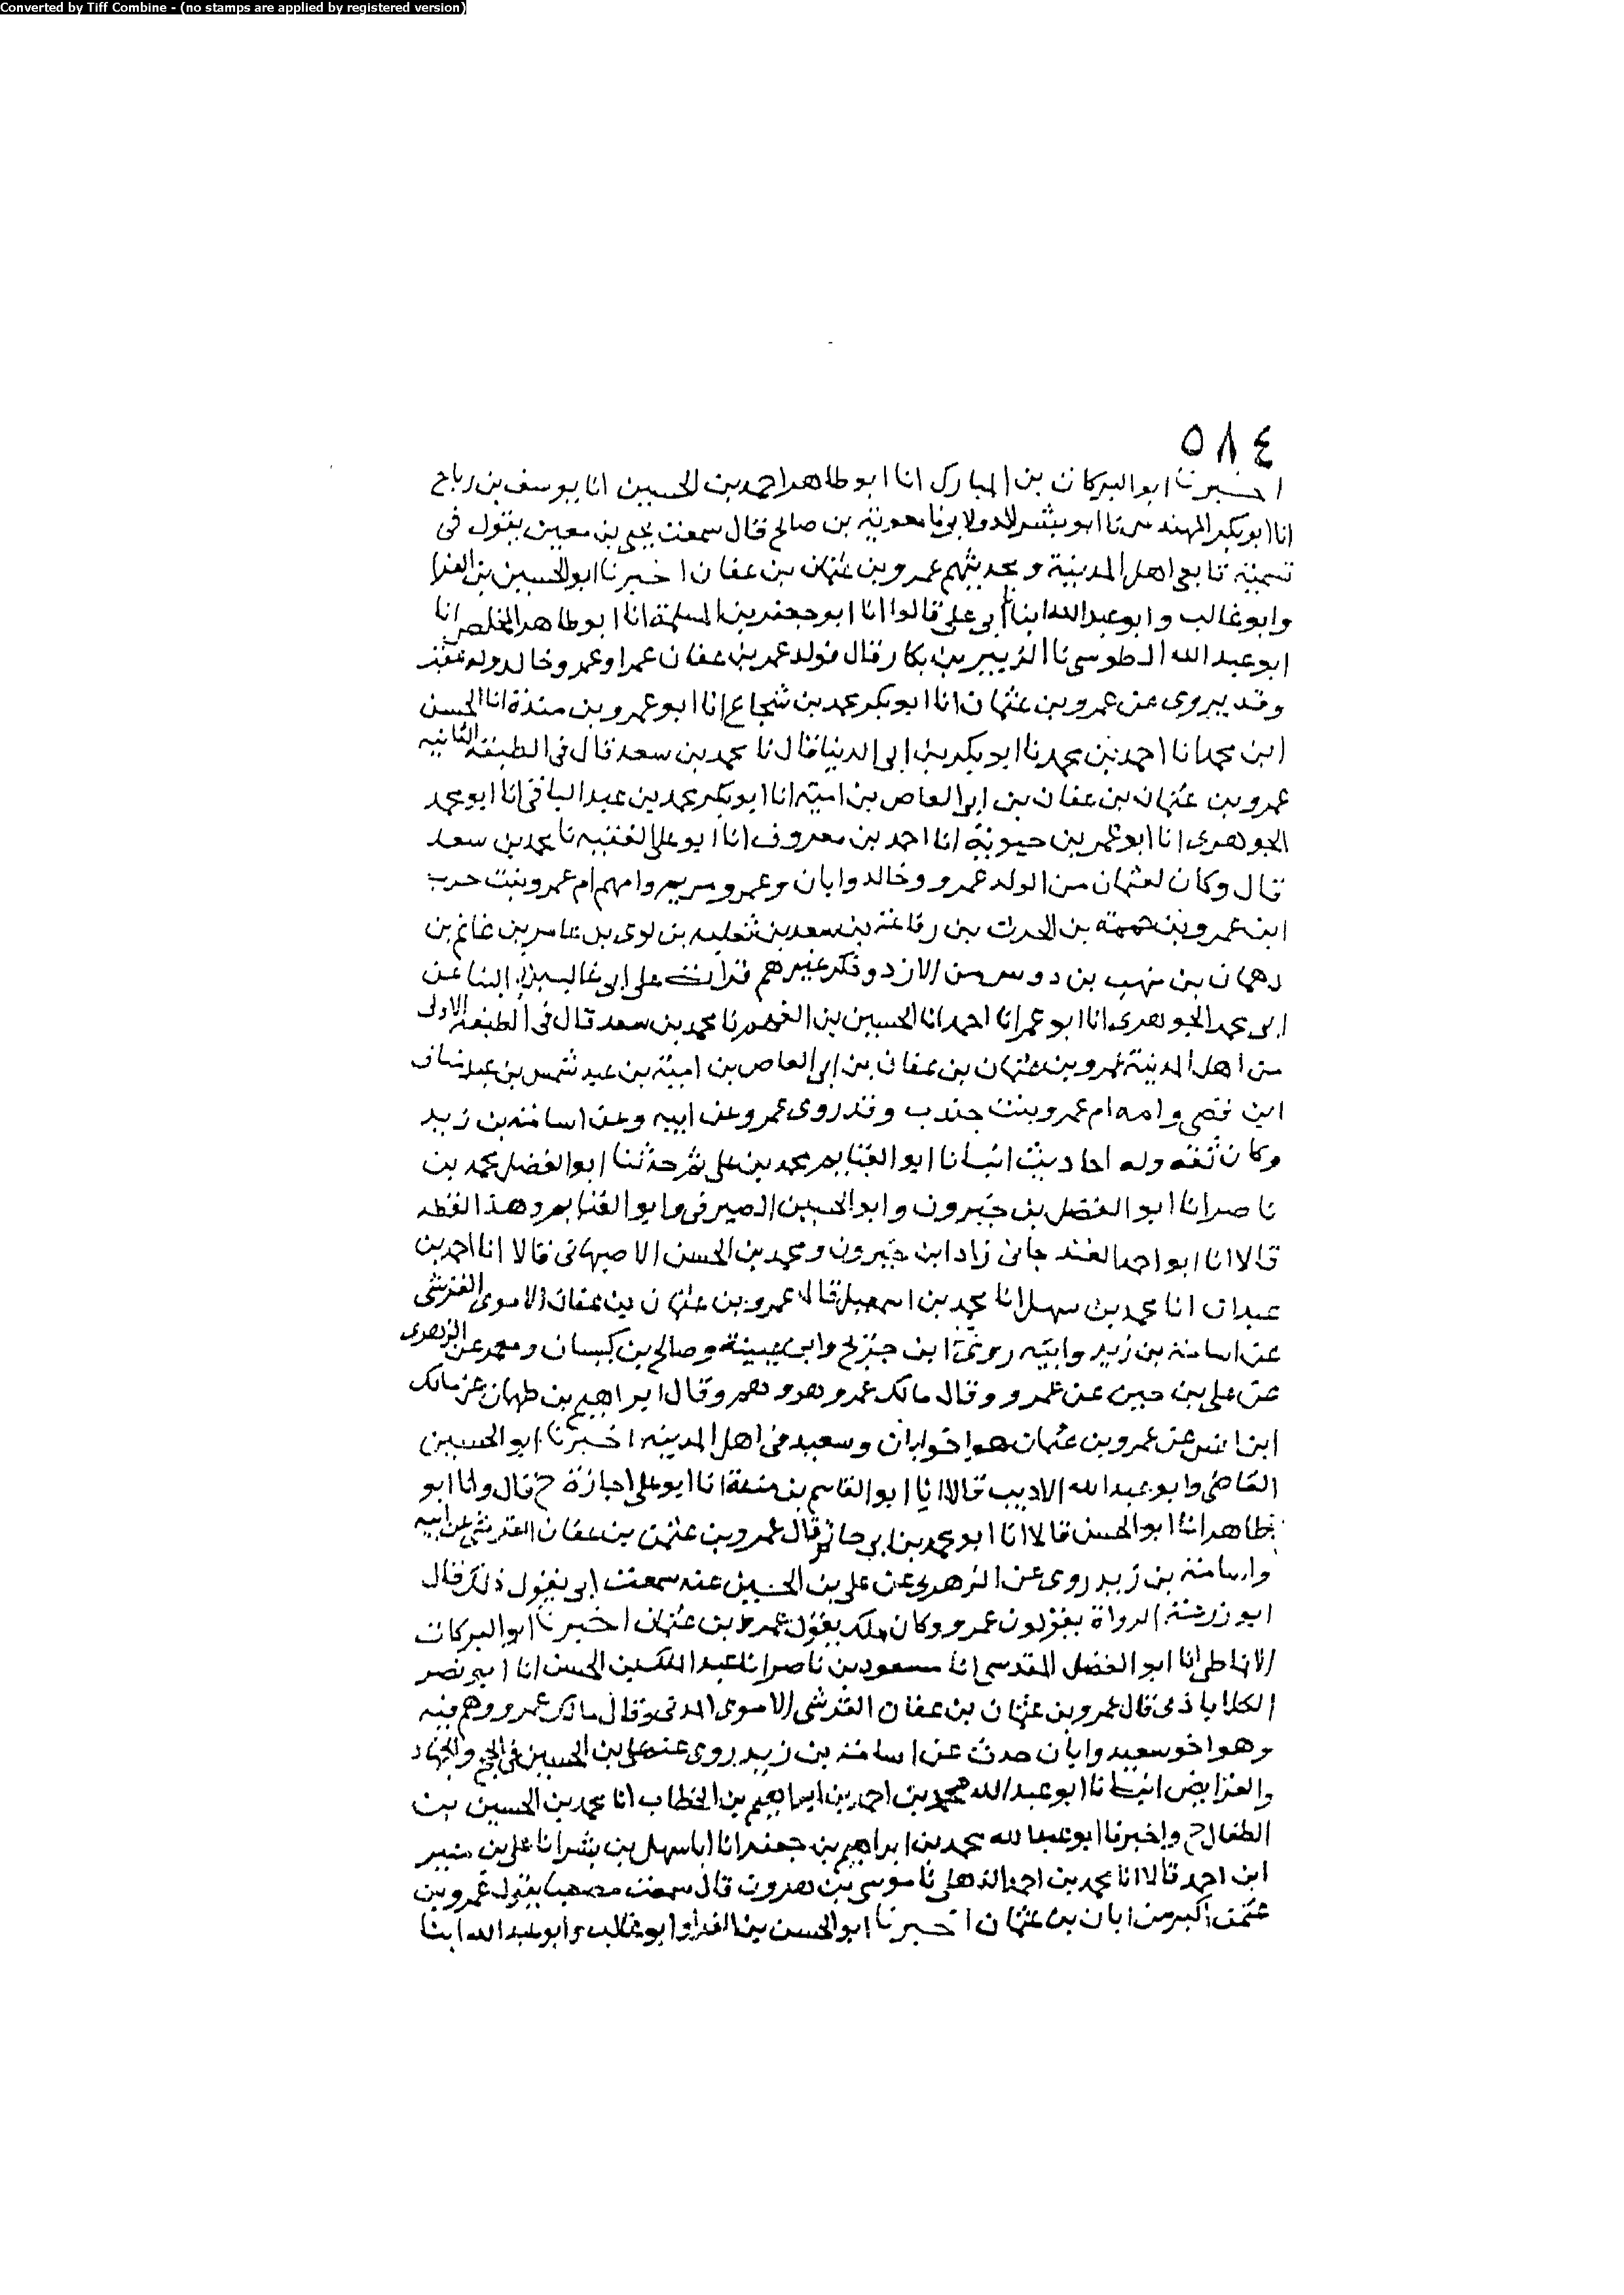 Converted by Tiff Combine - (no stamps are applied by registered version)
٥٨٤
اخبرنا ابو البركات بن المبارك انا ابو طاهر احمد بن الحسين انا يوسف بن رباح
انا ابو بكر المهندس نا ابو بشر الدولابي نا معوية بن صالح قال سمعت يحيى بن معين يقول في
تسمية تابعي اهل المدينة ومحدثيهم عمرو بن عثمان بن عفان اخبرنا ابو الحسين بن الفرا
وابو غالب وابو عبد الله ابنا ابي علي قالوا انا ابو جعفر بن المسلمة انا ابو طاهر المخلص انا
ابو عبد الله الطوسي نا الزبير بن بكار قال فولد عمر بن عفان عمرا وعمر وخالد وله عقب
وقد يروى عن عمرو بن عثمان انا ابو بكر محمد بن شجاع انا ابو عمرو بن مندة انا الحسن
ابن محمد انا احمد بن محمد نا ابو بكر بن ابي الدنيا قال نا محمد بن سعد قال في الطبقة الثانيه
عمرو بن عثمان بن عفان بن ابي العاص بن امية انا ابو بكر محمد بن عبد الباقي انا ابو محمد
الجوهري انا ابو عمر بن حيوية انا احمد بن معروف انا ابو علي الفقيه نا محمد بن سعد
قال وكان لعثمان من الولد عمرو وخالد وابان وعمر ومريم وامهم ام عمرو بنت حرب
ابن عمرو بن حممة بن الحرث بن رفاعة بن سعد بن ثعلبه بن لوى بن عامر بن غانم بن
دهمان بن منهب بن دوس من الازد وذكر غيرهم قرات على ابي غالب بن البنا عن
ابي محمد الجوهري انا ابو عمر انا احمد انا الحسين بن الفهم نا محمد بن سعد قال في الطبقة الاولى
من اهل المدينة عمرو بن عثمان بن عفان بن ابي العاص بن امية بن عبد شمس بن عبد مناف
ابن قصي وامه ام عمرو بنت جندب وقد روى عمرو عن ابيه وعن اسامة بن زيد
وكان ثقه وله احاديث انبانا ابو الغنايم محمد بن علي ثم حدثنا ابو الفضل محمد بن
ناصر انا ابو الفضل بن خيرون وابو الحسين الصيرفي وابو الغنايم وهذا لفظه
قالا انا ابو احمد الغندجاني زاد ابن خيرون ومحمد بن الحسن الاصبهاني قالا انا احمد بن
عبدان انا محمد بن سهل انا محمد بن اسمعيل قال عمرو بن عثمان بن عفان الاموي القرشي
عن اسامة بن زيد وابيه روى ابن جريج وابن عيينة وصالح بن كيسان ومعمر عن الزهري
عن علي بن حسين عن عمرو وقال مالك عمر وهو وهم وقال ابراهيم بن طهمان عن مالك
ابن انس عن عمرو بن عثمان هو اخو ابان وسعيد في اهل المدينه اخبرنا ابو الحسين
القاضي وابو عبد الله الاديب قالا انا ابو القاسم بن مندة انا ابو علي اجازة ح قال وانا ابو
طاهر انا ابو الحسن قالا انا ابو محمد بن ابي حاتم قال عمرو بن عثمن بن عفان القرشي عن ابيه
واسامة بن زيد روى عن الزهري عن علي بن الحسين عنه سمعت ابي يقول ذلك قال
ابو زرعة الرواة يقولون عمرو وكان ملك يقول عمر بن عثمان اخبرنا ابو البركات
الانماطي انا ابو الفضل المقدسي انا مسعود بن ناصر انا عبد الملك بن الحسن انا ابو نصر
الكلاباذي قال عمرو بن عثمان بن عفان القرشي الاموي المدني وقال مالك عمر ووهم فيه
وهو اخو سعيد وابان حدث عن اسامة بن زيد روى عنه علي بن الحسين في الحج والجهاد
والفرايض انبانا ابو عبد الله محمد بن احمد بن ابراهيم بن الخطاب انا محمد بن الحسين بن
الطفال ح واخبرنا ابو عبد الله محمد بن ابراهيم بن جعفر انا ابا سهل بن بشر انا علي بن منير
ابن احمد قالا انا محمد بن احمد الذهلي نا موسى بن هرون قال سمعت مصعبا يقول عمرو بن
عثمن اكبر من ابان بن عثمان اخبرنا ابو الحسن بن الفرا وابو غالب وابو عبد الله ابنا